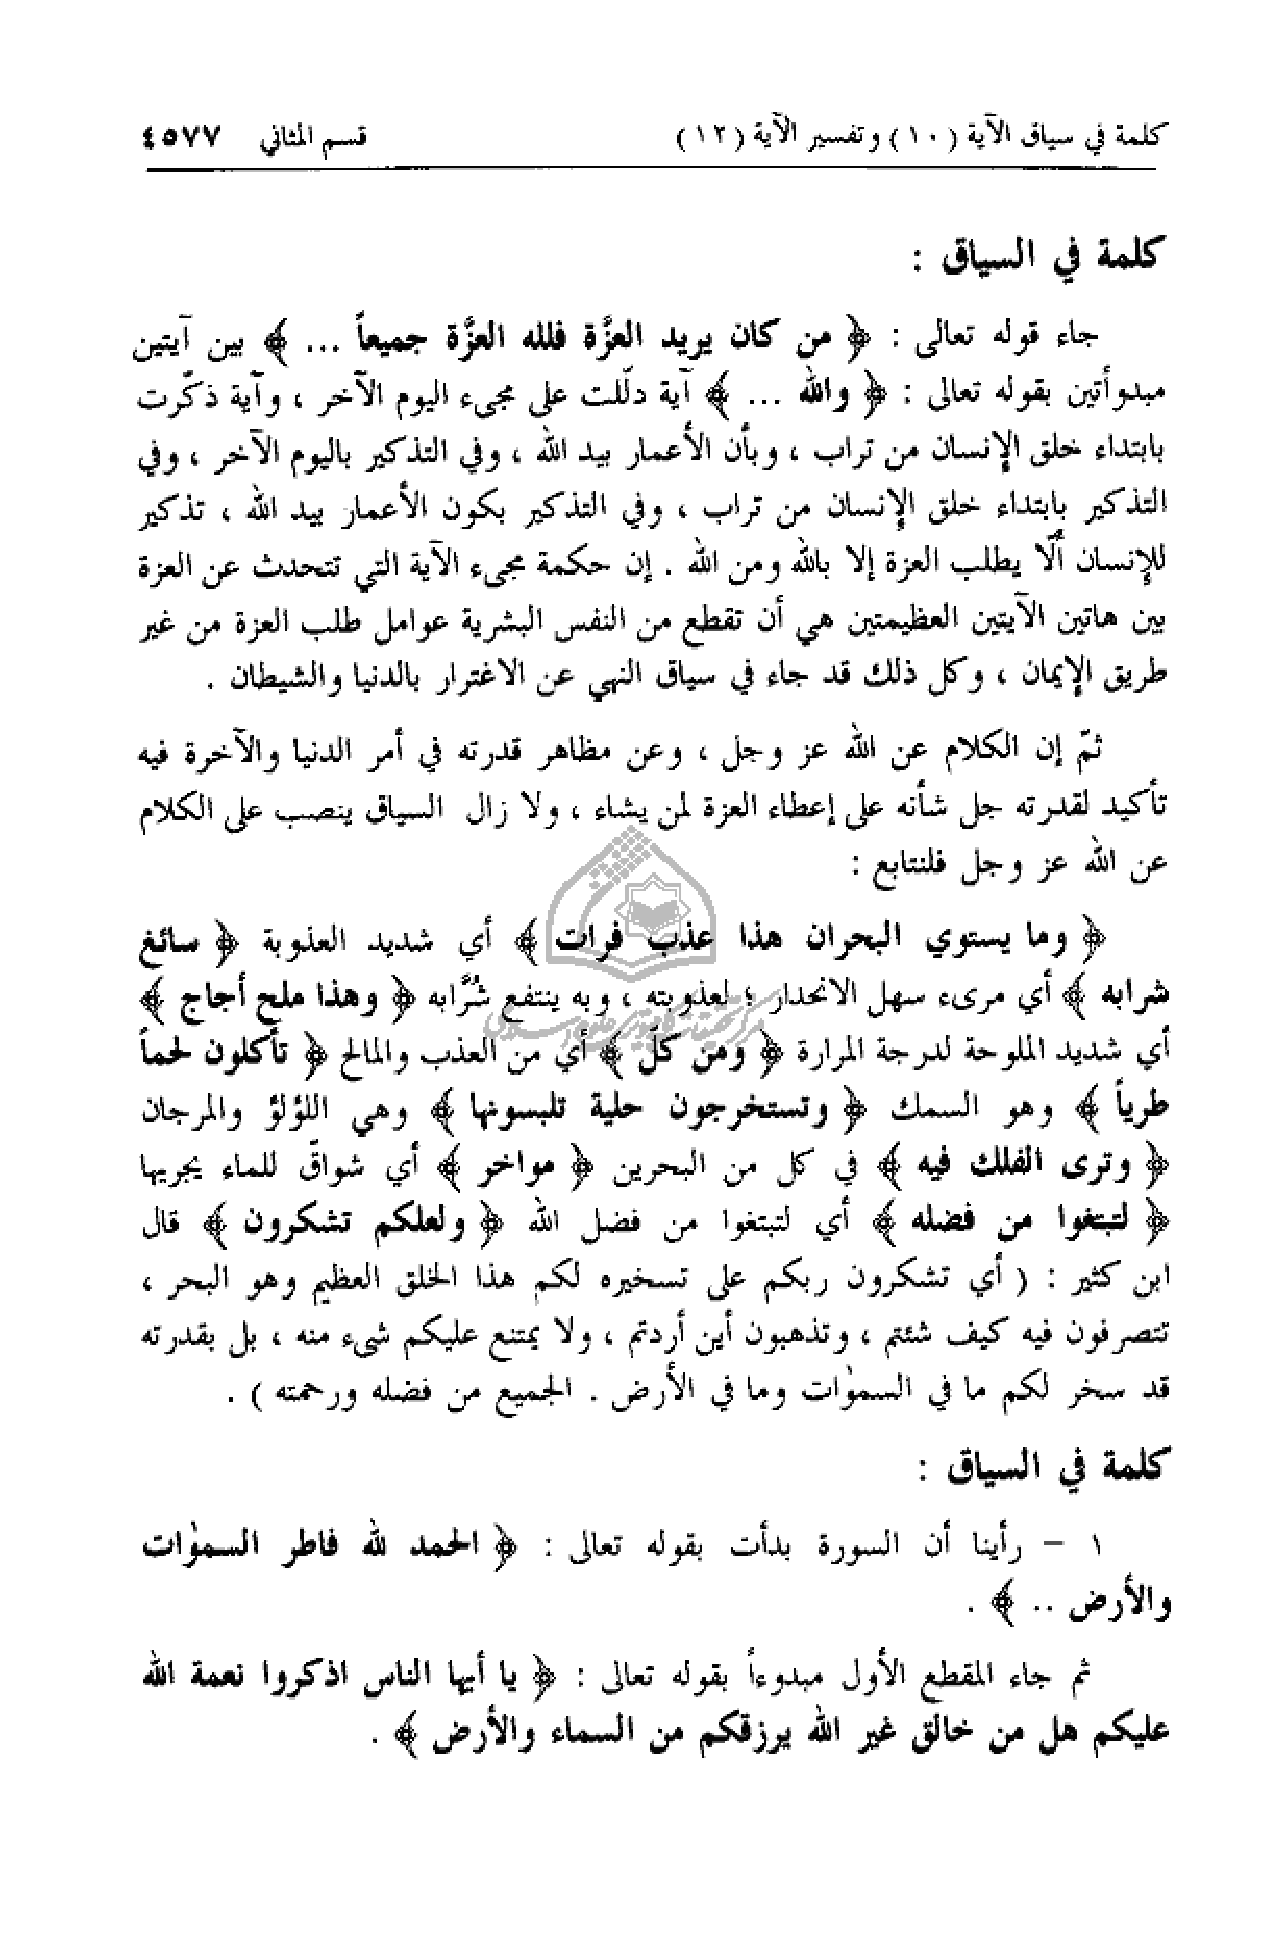 كلمة في سياق الآية (١٠) وتفسير الآية (١٢) قسم المثاني ٤٥٧٧
كلمة في السياق :
جاء قوله تعالى : ﴿ من كان يريد العزَّة فلله العزَّة جميعاً ... ﴾ بين آيتين
مبدوأتين بقوله تعالى : ﴿ والله ... ﴾ آية دلّلت على مجىء اليوم الآخر ، وآية ذكّرت
بابتداء خلق الإنسان من تراب ، وبأن الأعمار بيد الله ، وفي التذكير باليوم الآخر ، وفي
التذكير بابتداء خلق الإنسان من تراب ، وفي التذكير بكون الأعمار بيد الله ، تذكير
للإنسان ألّا يطلب العزة إلا بالله ومن الله . إن حكمة مجىء الآية التي تتحدث عن العزة
بين هاتين الآيتين العظيمتين هي أن تقطع من النفس البشرية عوامل طلب العزة من غير
طريق الإيمان ، وكل ذلك قد جاء في سياق النهي عن الاغترار بالدنيا والشيطان .
ثمّ إن الكلام عن الله عز وجل ، وعن مظاهر قدرته في أمر الدنيا والآخرة فيه
تأكيد لقدرته جل شأنه على إعطاء العزة لمن يشاء ، ولا زال السياق ينصب على الكلام
عن الله عز وجل فلنتابع :
﴿ وما يستوي البحران هذا عذب فرات ﴾ أي شديد العذوبة ﴿ سائغ
شرابه ﴾ أي مرىء سهل الانحدار ؛ لعذوبته ، وبه ينتفع شُرَّابه ﴿ وهذا ملح أجاج ﴾
أي شديد الملوحة لدرجة المرارة ﴿ ومن كلّ ﴾ أي من العذب والمالح ﴿ تأكلون لحماً
طرياً ﴾ وهو السمك ﴿ وتستخرجون حلية تلبسونها ﴾ وهي اللؤلؤ والمرجان
﴿ وترى الفلك فيه ﴾ في كل من البحرين ﴿ مواخر ﴾ أي شواقّ للماء يجريها
﴿ لتبتغوا من فضله ﴾ أي لتبتغوا من فضل الله ﴿ ولعلكم تشكرون ﴾ قال
ابن كثير : ( أي تشكرون ربكم على تسخيره لكم هذا الخلق العظيم وهو البحر ،
تتصرفون فيه كيف شئتم ، وتذهبون أين أردتم ، ولا يمتنع عليكم شىء منه ، بل بقدرته
قد سخر لكم ما في السمٰوات وما في الأرض . الجميع من فضله ورحمته ) .
كلمة في السياق :
١ – رأينا أن السورة بدأت بقوله تعالى : ﴿ الحمد لله فاطر السمٰوات
والأرض .. ﴾ .
ثم جاء المقطع الأول مبدوءاً بقوله تعالى : ﴿ يا أيها الناس اذكروا نعمة الله
عليكم هل من خالق غير الله يرزقكم من السماء والأرض ﴾ .